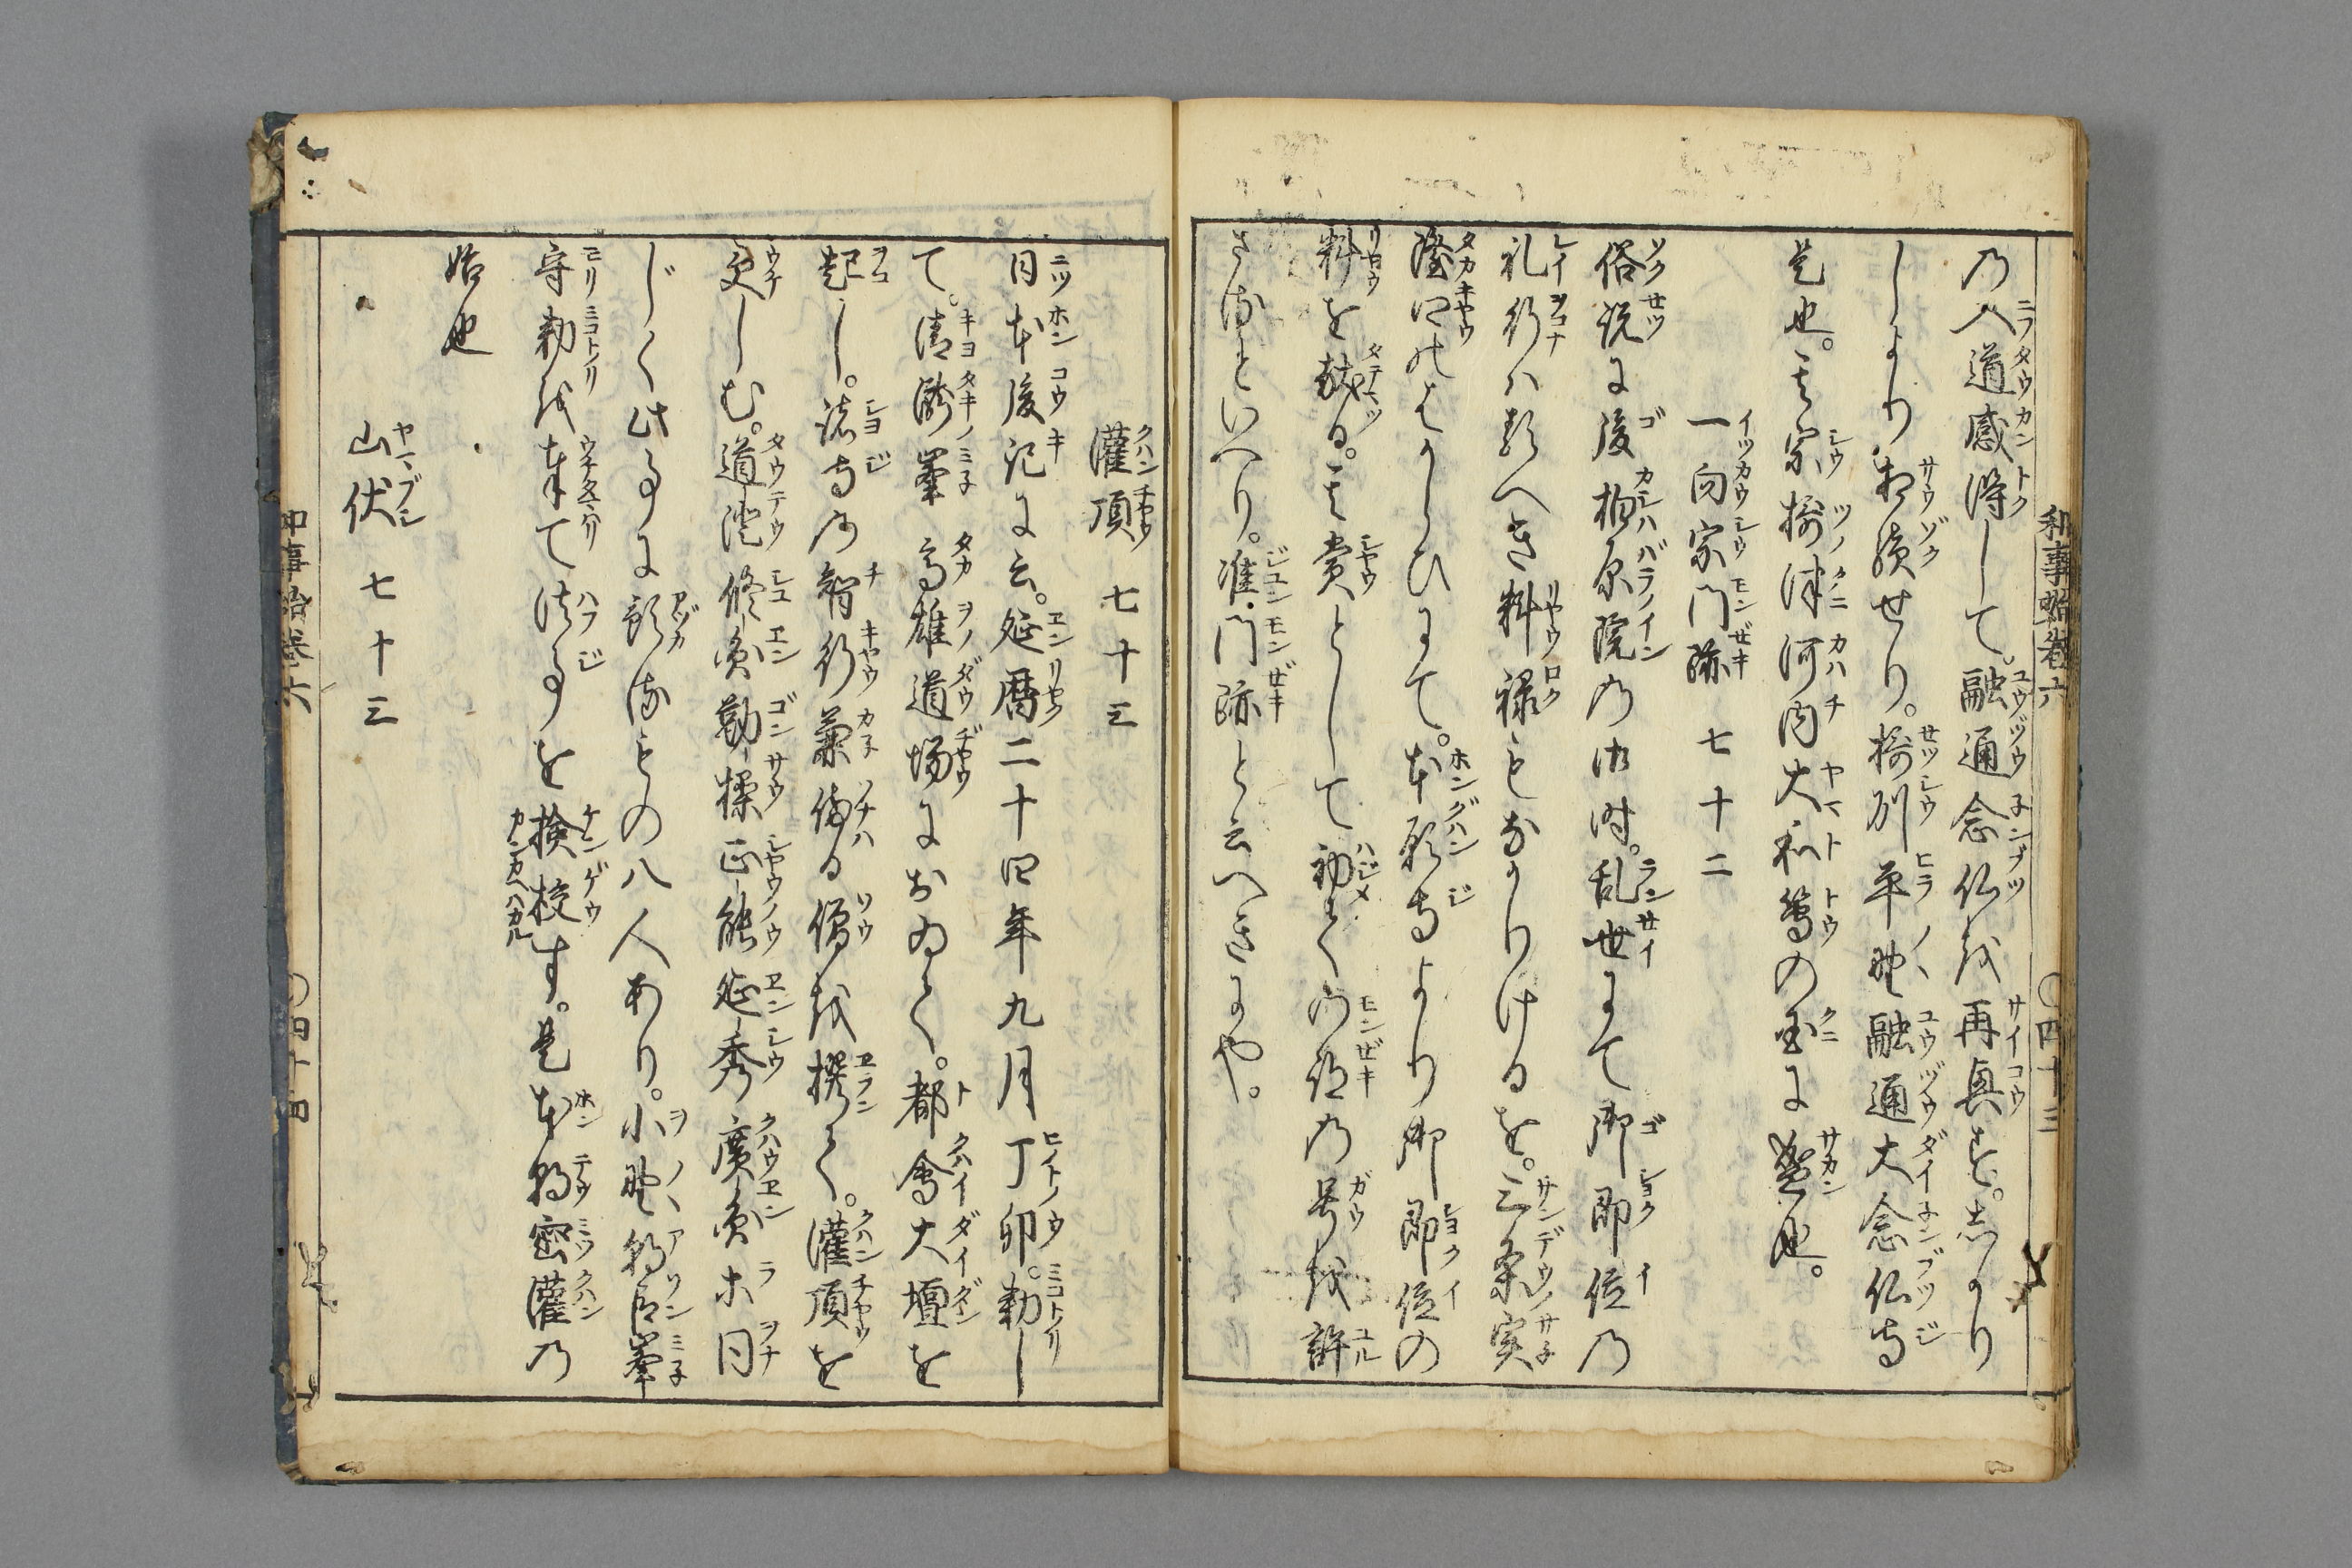 和事始巻六 〇四十三
乃入道感得して。融通念仏を再興す。志かり
しより相續せり。摂州平野融通大念仏寺
是也。其宗摂津河内大和等の国に盛也。
一向宗門跡 七十二
俗説に後柏原院の御時。乱世にて御即位の
礼行ハるへき料禄もなかりけるを。三条実
隆卿のはからひにて。本願寺より御即位の
料を献る。其賞として初て門跡の号を許
さるといへり。准門跡と云へきにや。
灌頂 七十三
日本後記に云。延暦二十四年九月丁卯。勅し
て。清瀧峯高雄道場におゐて。都會大壇を
起し。諸寺の智行兼備る僧を撰て。灌頂を
受しむ。道澄修圓勤操正能延秀廣圓等同
じく此事に預るもの八人あり。小野朝臣峯
守勅を奉て法事を検校す。是本朝密灌の
始也
山伏 七十三
和事始巻六 〇四十四